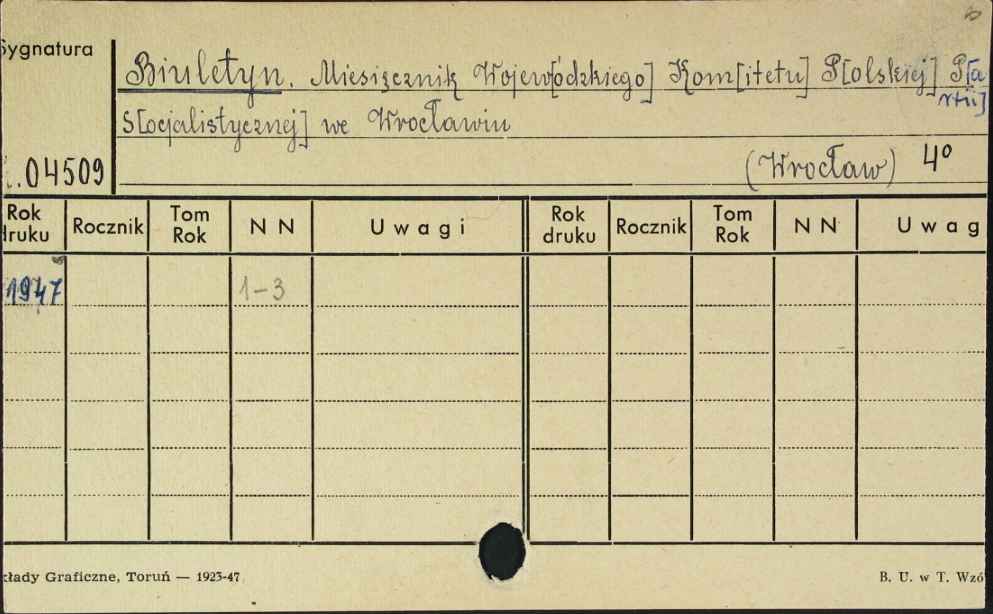 Sygnatura
Biuletyn. Miesięcznik Wojew[ódzkiego] Kom[itetu] P[olskiej] P[a
rtii]
S[ocjalistycznej] we Wrocławiu
.04509
(Wrocław) 4°
Rok druku Rocznik Tom Rok NN Uwagi Rok druku Rocznik Tom Rok NN Uwag
1947 1-3
kłady Graficzne, Toruń — 1923-47
B. U. w T. Wzó